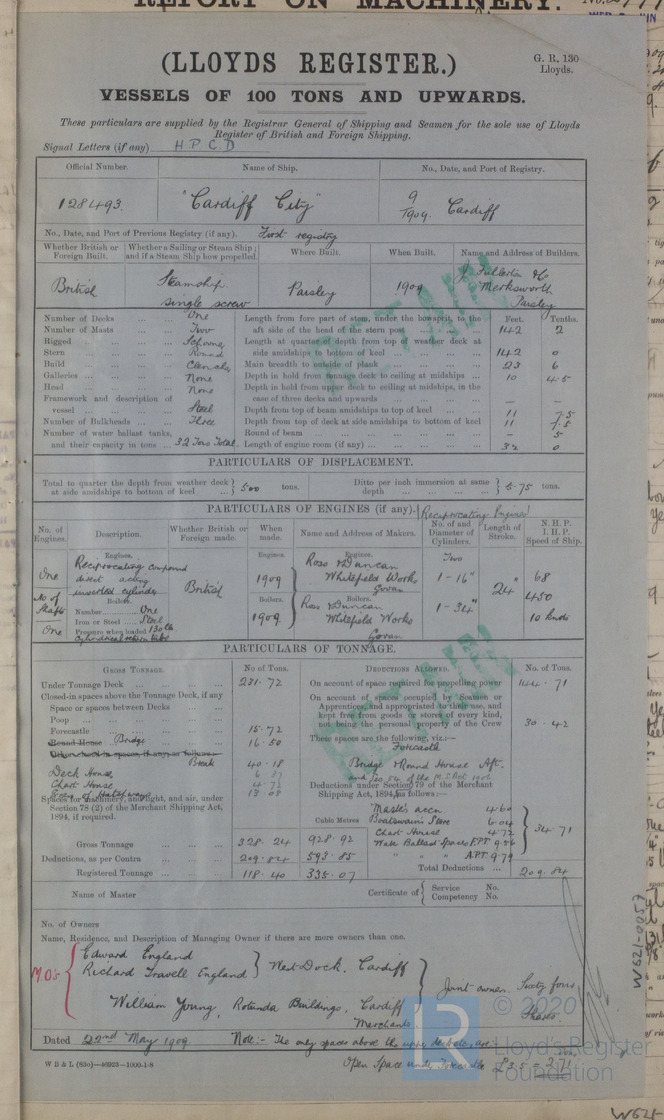 REPORT ON MACHINERY.
(LLOYDS REGISTER.)
G. R. 130
Lloyds.
VESSELS OF 100 TONS AND UPWARDS.
These particulars are supplied by the Registrar General of Shipping and Seamen for the sole use of Lloyds
Register of British and Foreign Shipping.
Signal Letters (if any) H P C D
Official Number. Name of Ship. No., Date, and Port of Registry.
128493. "Cardiff City" 9/1909. Cardiff
No., Date, and Port of Previous Registry (if any). First registry
Whether British or Foreign Built. Whether a Sailing or Steam Ship; and if a Steam Ship how propelled. Where Built. When Built. Name and Address of Builders.
British Steamship single screw Paisley 1909 J. Fullerton & Co Merksworth Paisley
RETAIN
Number of Decks One Length from fore part of stem, under the bowsprit, to the aft side of the head of the stern post Feet. 142 Tenths. 2
Number of Masts Two
Rigged Schooner Length at quarter of depth from top of weather deck at side amidships to bottom of keel 142 0
Stern Round
Build Clencher Main breadth to outside of plank 23 6
Galleries None Depth in hold from tonnage deck to ceiling at midships 10 4.5
Head None Depth in hold from upper deck to ceiling at midships, in the case of three decks and upwards — —
Framework and description of vessel Steel Depth from top of beam amidships to top of keel 11 7.5
Number of Bulkheads Three Depth from top of deck at side amidships to bottom of keel 11 7.5
Number of water ballast tanks, and their capacity in tons 32 Tons Total Round of beam — 5
Length of engine room (if any) 32 0
PARTICULARS OF DISPLACEMENT.
Total to quarter the depth from weather deck at side amidships to bottom of keel } 500 tons. Ditto per inch immersion at same depth } 5.75 tons.
PARTICULARS OF ENGINES (if any). (Reciprocating Engines)
No. of Engines. Description. Whether British or Foreign made. When made. Name and Address of Makers. No. of and Diameter of Cylinders. Length of Stroke. N.H.P. I.H.P. Speed of Ship.
Engines. Engines. Engines. Two
One Reciprocating compound direct acting inverted cylinder British 1909 Ross & Duncan Whitefield Works Govan 1-16" 24" 68
No. of Shafts Boilers. Boilers. Boilers. 450
One Number One Iron or Steel Steel Pressure when loaded 130 lbs 1909 Ross & Duncan Whitefield Works Govan 1-34" 10 knots
PARTICULARS OF TONNAGE.
GROSS TONNAGE. No of Tons. DEDUCTIONS ALLOWED. No. of Tons.
Under Tonnage Deck 231.72 On account of space required for propelling power 144.71
Closed-in spaces above the Tonnage Deck, if any On account of spaces occupied by Seamen or
Space or spaces between Decks Apprentices, and appropriated to their use, and
Poop kept free from goods or stores of every kind,
Forecastle 15.72 not being the personal property of the Crew 30.42
Round House Bridge 16.50 These spaces are the following, viz.:—
Forecastle
Break 40.18 Bridge & Round House Aft.
Deck House
Chart House 4.72 Deductions under Section 79 of the Merchant
Excess of Hatchways Shipping Act, 1894, as follows:—
Spaces for machinery, and light, and air, under Section 78 (2) of the Merchant Shipping Act, 1894, if required. Cubic Metres
Master's accn 4.60
Boatswain's Store 6.04
Chart House 4.72
Water Ballast Spaces F.P.T. 9.56
" " " A.P.T. 9.79 } 34.71
Gross Tonnage 328.24 928.92
Deductions, as per Contra 209.84 593.85
Registered Tonnage 118.40 335.07 Total Deductions 209.84
Name of Master Certificate of { Service No. Competency No.
No. of Owners
Name, Residence, and Description of Managing Owner if there are more owners than one.
M.O's { Edward England
Richard Travell England } West Dock, Cardiff
William Young, Rotunda Buildings, Cardiff
Merchants } Joint owners Sixty four Shares
Dated 22nd May 1909 Note:- The only spaces above the upper deck are:
Open Space under Forecastle
W B & L (83o)—46923—1000-1-8
W621-0057
© 2020
Lloyd's Register
Foundation